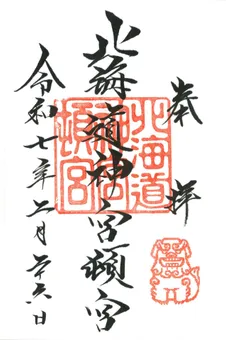 奉拝
北海道神宮頓宮
北海道神宮頓宮
令和七年二月二十六日